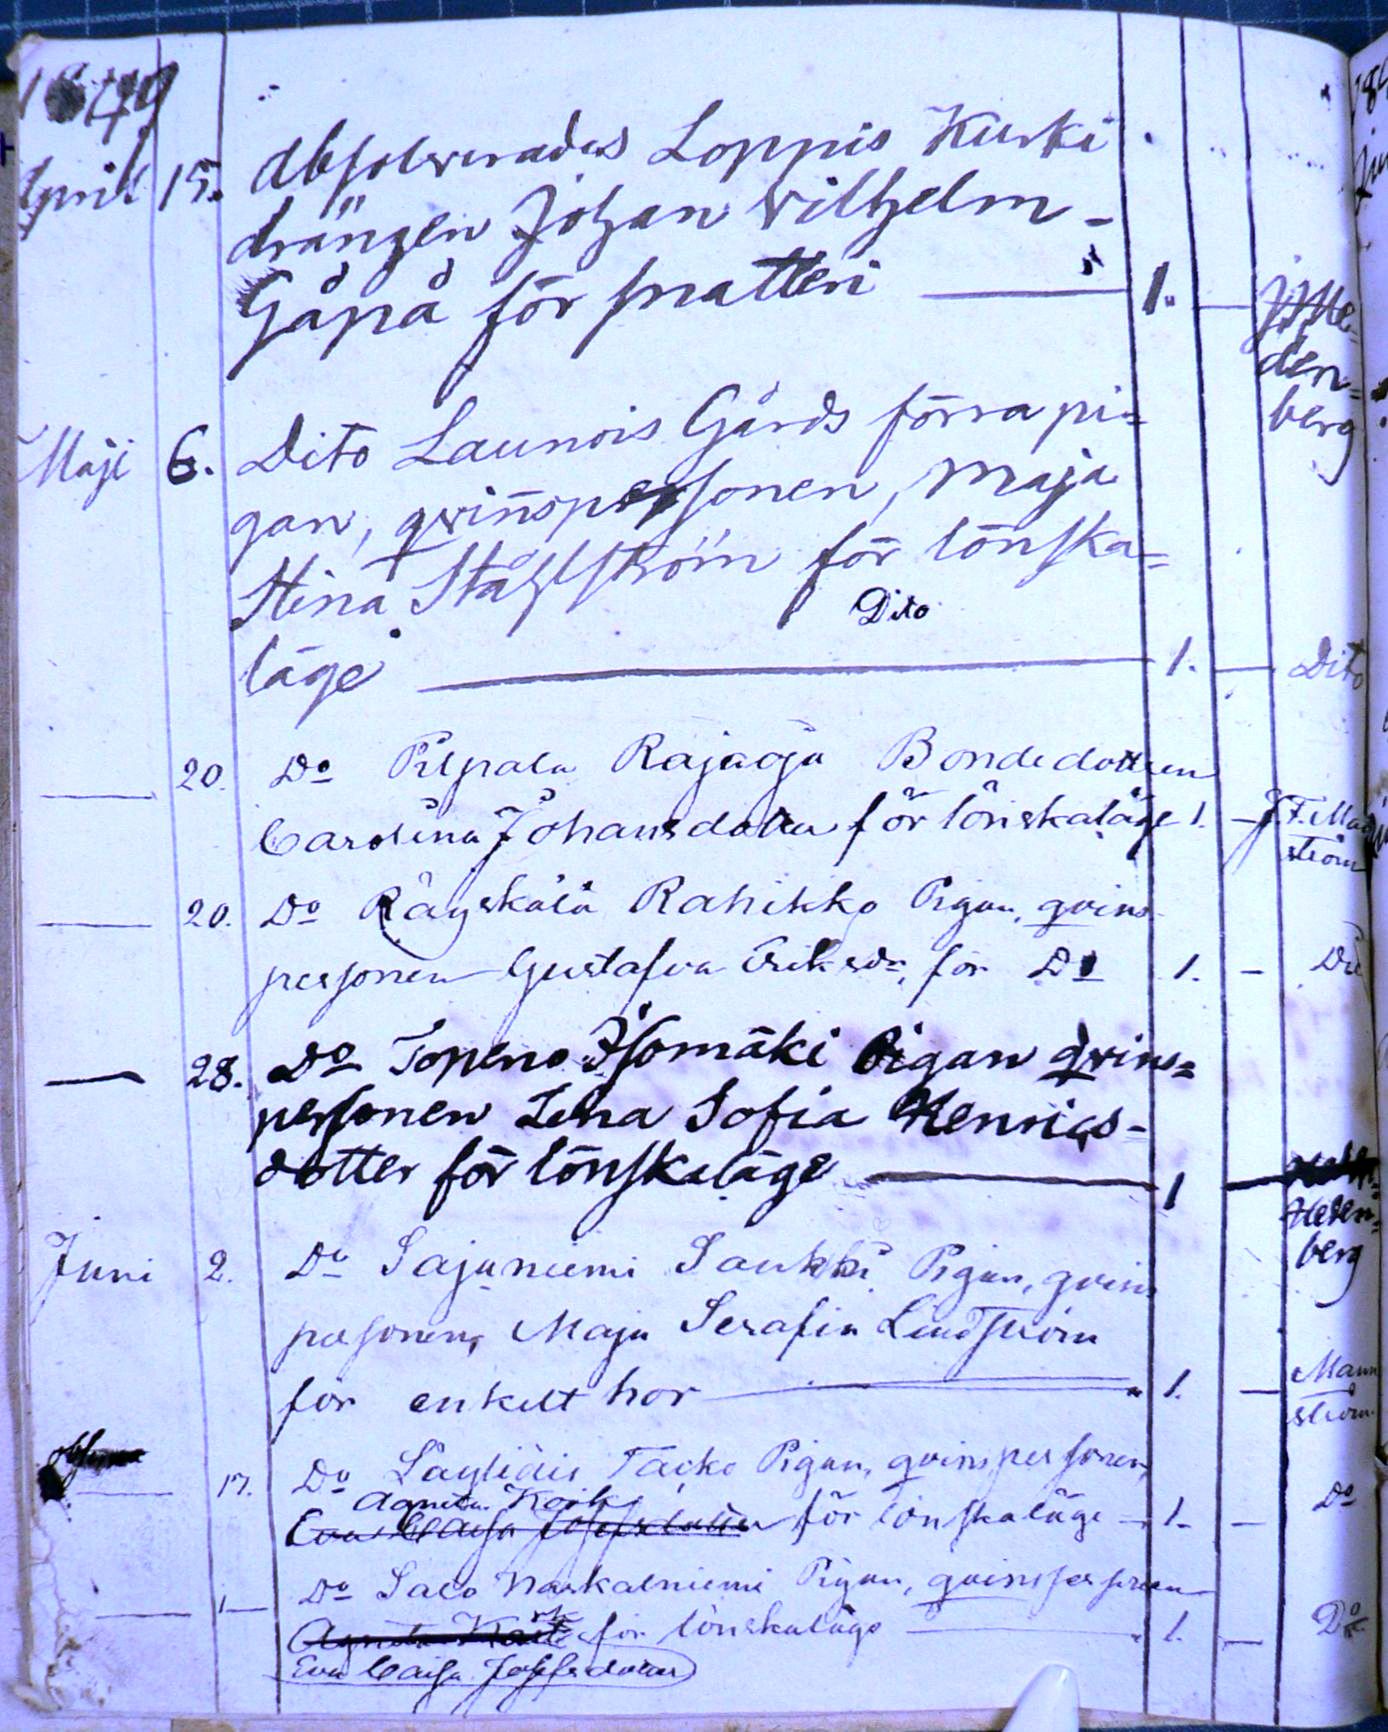 1849
April 15. Absolverades Loppis Kurki
drängen Johan Wilhelm
Gåpå för snatteri 1. —
den=
berg
Maji 6. Dito Launois Gårds förra pi=
gan, qvinspersonen, Maja
Stina Ståhlström för lönska=
Dito
läge 1. — Dito
— 20. Do Pilpala Rajaoja Bondedottren
Carolina Johansdotter för lönskaläge 1. —
ström
— 20. Do Räyskälä Rahikko Pigan, qvins
personen Gustafva Eriksdr för Do 1. —
— 28. Do Topeno Isomäki Pigan qvins=
personen Lena Sofia Henrics-
dotter för lönskaläge 1 —
Heden=
berg
Juni 2. Do Sajuniemi Saukki Pigan, qvins
personen, Maja Serafia Lindström
for enkelt hor 1. — Mann
ström
— 17. Do Läyliäis Tacko Pigan, qvinspersonen,
Agneta Kork
Eva Caisa Josefsdotter för lönskaläge 1. — Do
— Do Salo Narkalniemi Pigan, qvinspersonen
Agneta Kork för lönskaläge 1. — Do
Eva Caisa Josefsdotter